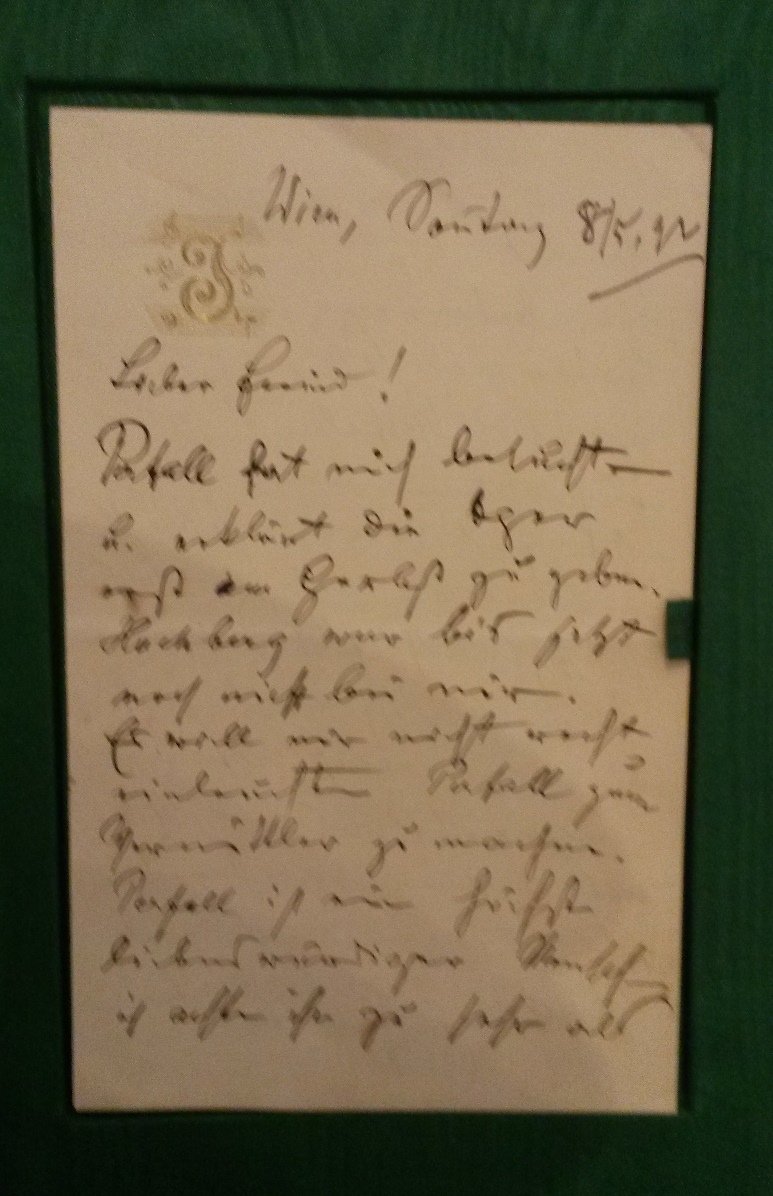 J
Wien, Sontag 8/5. 92
Lieber Freund!
hat mich besucht
u. erklärt die Oper
erst im Herbst zu geben.
Hochberg war bis jetzt
noch nicht bei mir.
Es will mir nicht recht
einleuchten zum
Vermittler zu machen.
ist ein höchst
liebenswürdiger Mensch
ich achte ihn zu sehr als